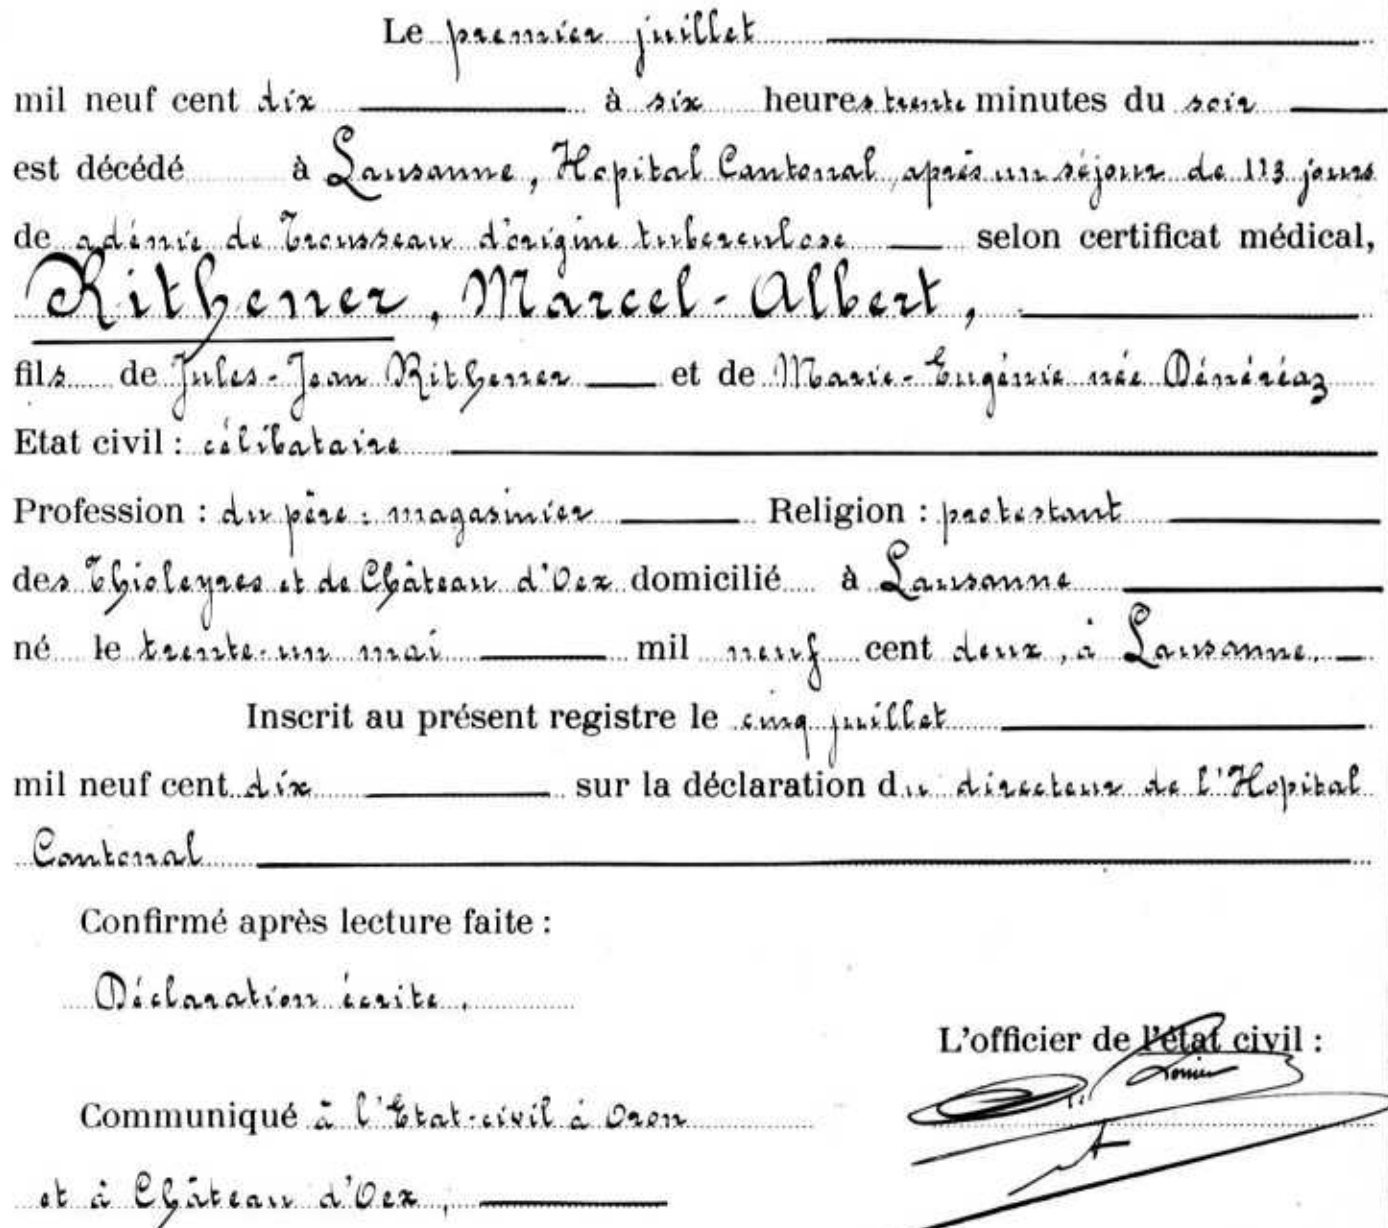 Le premier juillet
mil neuf cent dix à six heures trente minutes du soir
est décédé à Lausanne, Hopital Cantonal, après un séjour de 113 jours
de adénie de Trousseau d'origine tuberculose selon certificat médical,
Rithener, Marcel-Albert,
fils de Jules-Jean Rithener et de Marie-Eugénie née Dénéréaz
Etat civil : célibataire
Profession : du père : magasinier Religion : protestant
des Thioleyres et de Château d'Oex domicilié à Lausanne
né le trente-un mai mil neuf cent deux, à Lausanne.
Inscrit au présent registre le cinq juillet
mil neuf cent dix sur la déclaration du directeur de l'Hopital
Cantonal
Confirmé après lecture faite :
Déclaration écrite.
L'officier de l'état civil :
Communiqué à l'Etat-civil à Oron
et à Château d'Oex,